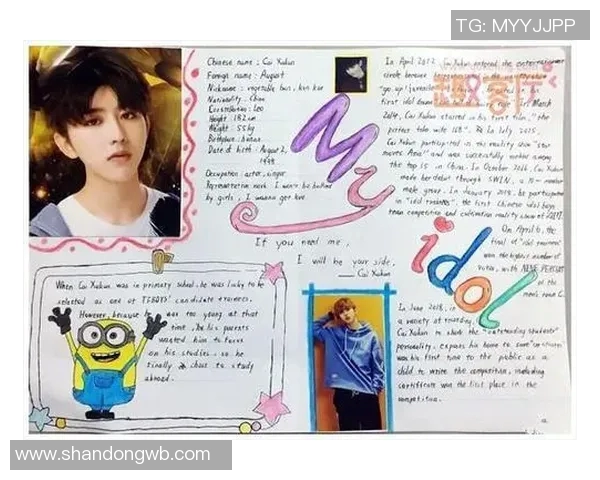 TG: MYYJJPP
Chinese name: Cai Xukun
Foreign name: August
Nickname: vegetable bun, kun kun
Nationality: China
Constellation: Leo
Height: 182 cm
Weight: 55 kg
Birthplace:
Date of birth: August 2,
1998
Occupation: actor, singer
Representative work I won't be bullied
by girls, I wanna get love
My
idol
If you need me,
I will be your side,
—— Cai Xukun
In April 2012, Cai Xukun entered the entertainment
circle because
first idol drama
2014, Cai Xukun starred in his first film, "the
perfect fake wife 108". In July 2015,
Cai Xukun participated in the reality show "Star
moves Asia" and was successfully
the top 15 in China. In October 2016, Cai Xukun
made her debut through SWIN, a 10-member
male group. In January 2018, he participated
in "idol trainees", the first Chinese idol boys
team competition and cultivation reality show
On April 6, the
final of "idol producer"
won the highest number of
votes, with NINE PERCENT
of the
men's team C.
In June 2018, in
a variety of
Cai Xukun to share the "outstanding students"
personality,
was his first time to the public as a
child to write the composition, including
certificate won the first place in the
competition.
When Cai Xukun was in primary school, he was lucky to be
selected as one of TFBOYS' candidate trainees.
However, because he was too young at that
time, he, his parents
wanted him to focus
on his studies, so he
finally chose to study
abroad.
www.shandongwb.com